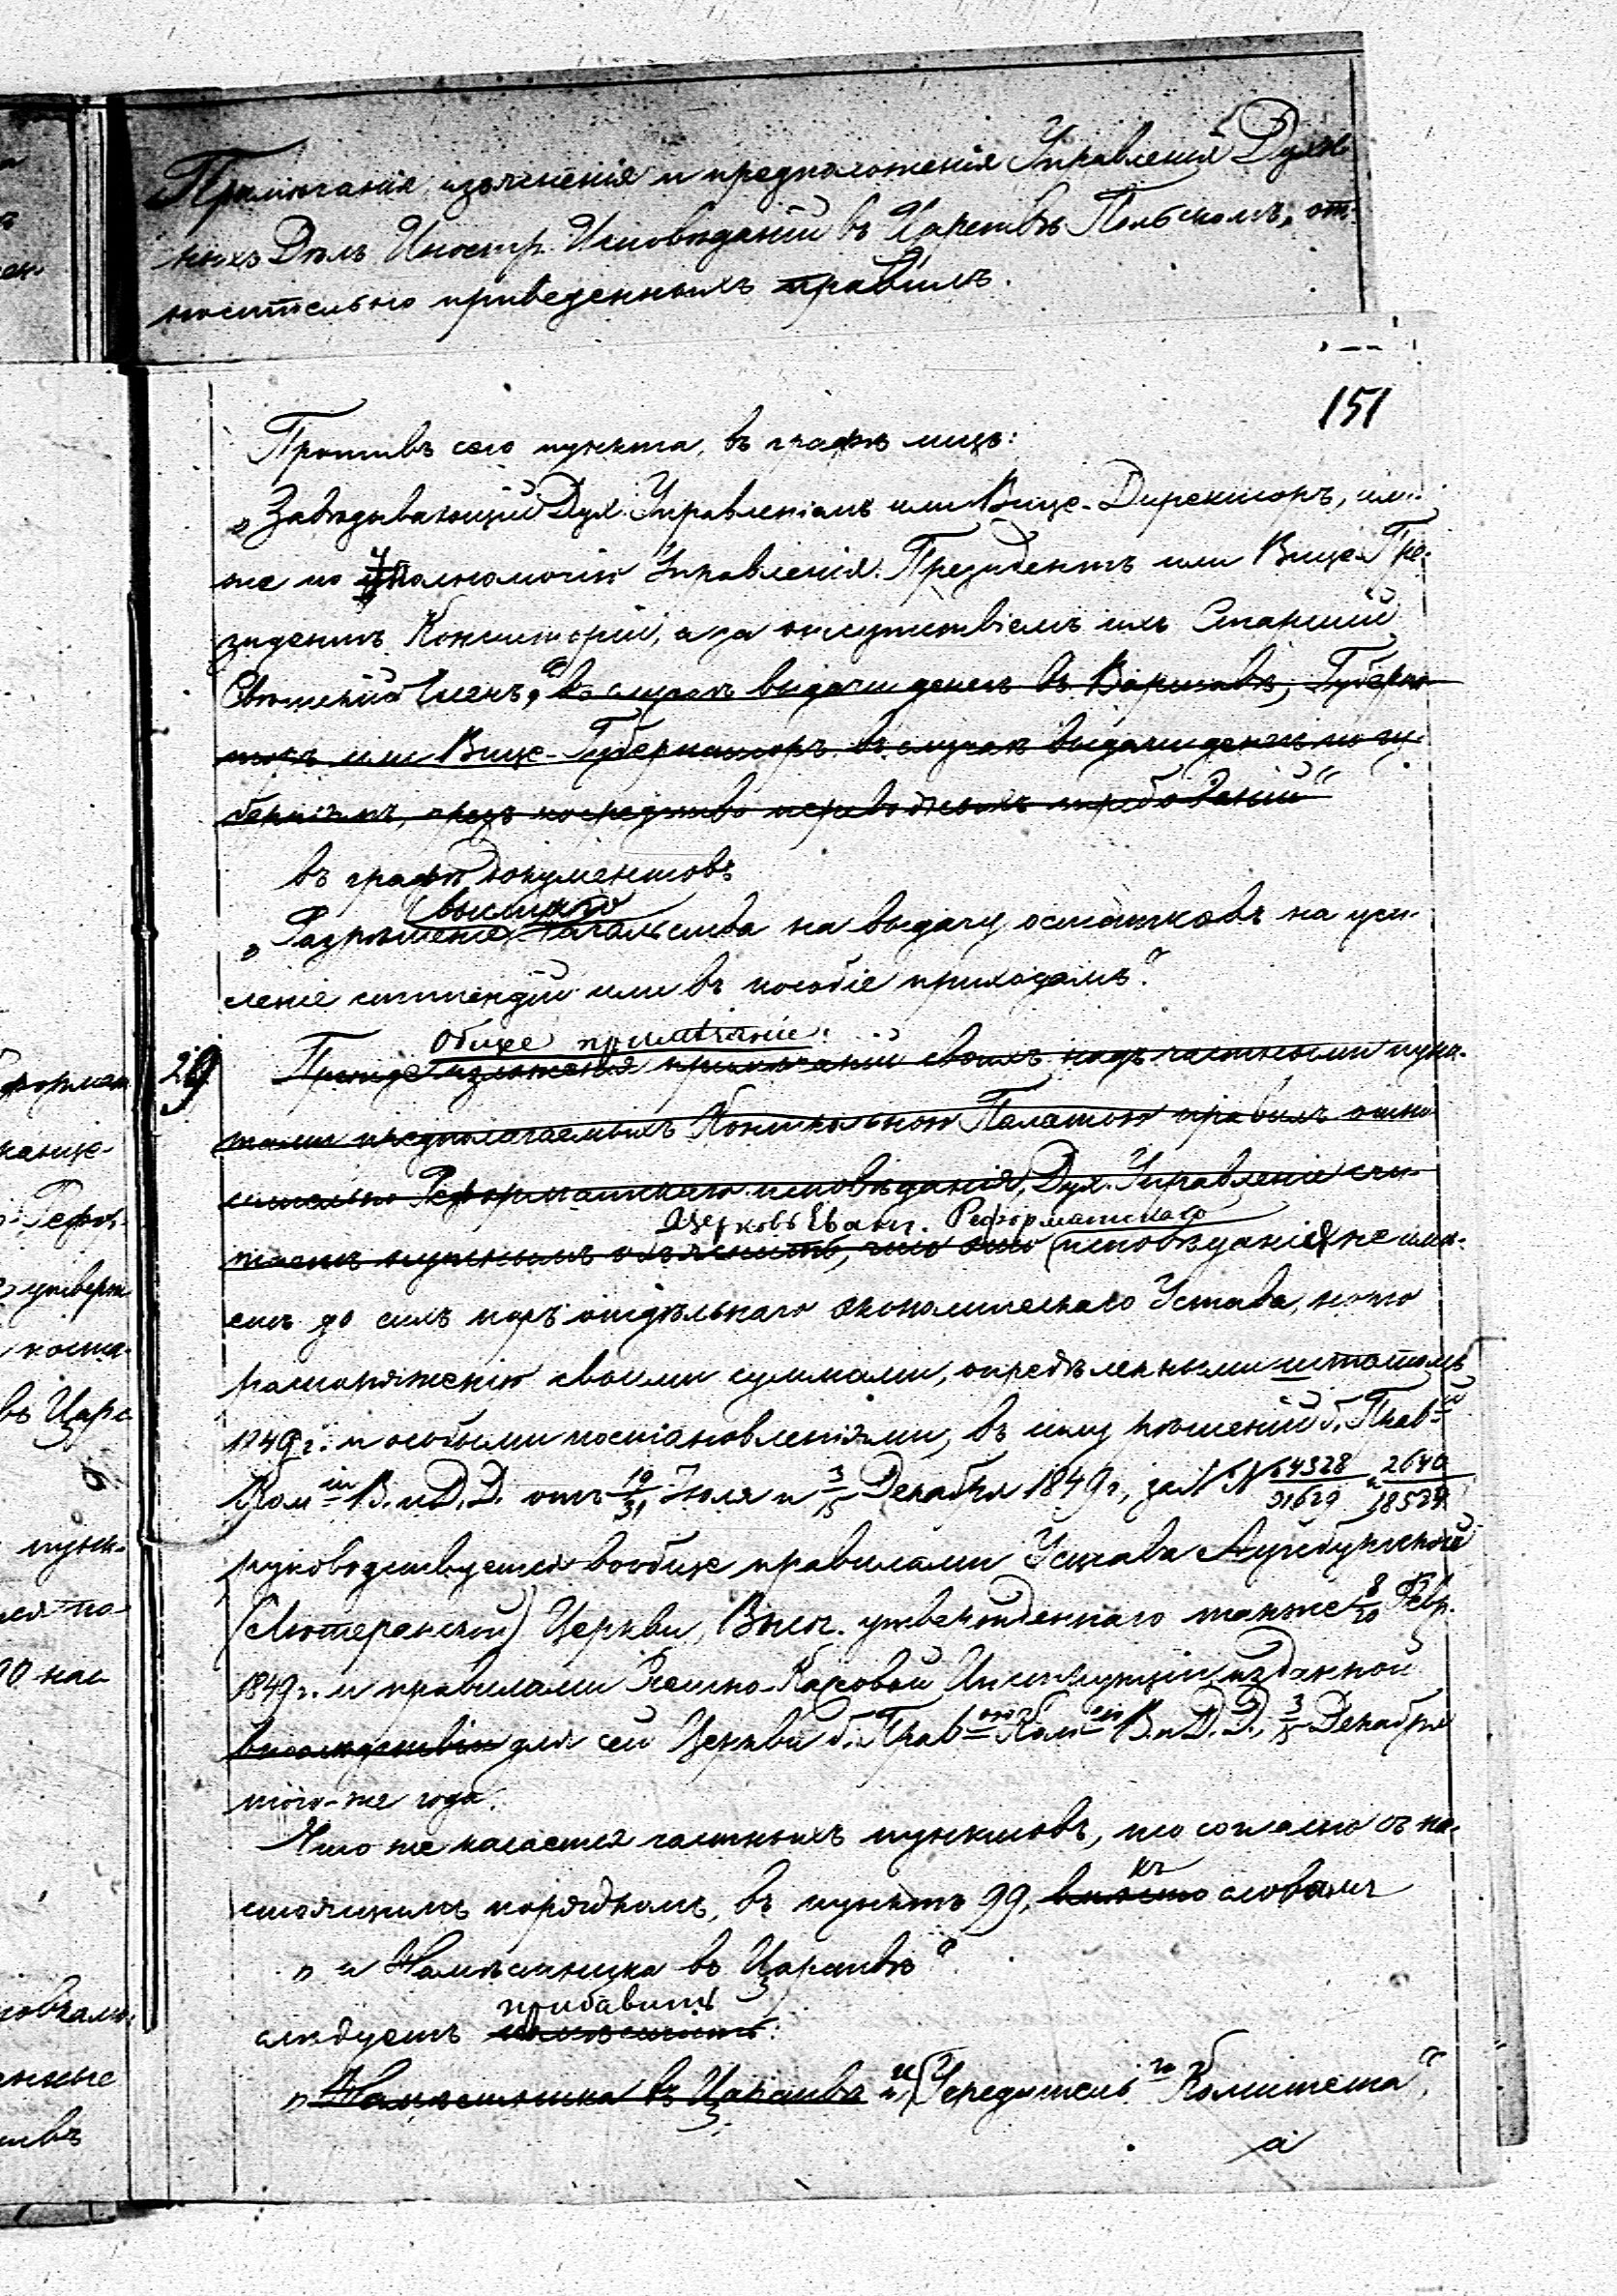 Примѣчанія, изъясненія и предположенія Управленія Духов-
ныхъ Дѣлъ Иностр. Исповѣданій въ Царствѣ Польскомъ, от-
носительно приведенныхъ правилъ.
151
Противъ сего пункта, въ графѣ лицъ:
„Завѣдывающій Дух. Управленіемъ или Вице-Директоръ, или
же по уполномочію Управленія. Президентъ или Вице-Пре-
зидентъ Консисторіи, а за отсутствіемъ ихъ Старшій
Свѣтскій Членъ," въ случаѣ выдачи денегъ въ Варшавѣ, Губерна-
торъ или Вице-Губернаторъ въ случаѣ выдачи денегъ по гу-
берніямъ, чрезъ посредство переводныхъ требованій"
въ графѣ документовъ
высшаго
„Разрѣшеніе Начальства на выдачу остатковъ на уси-
леніе стипендій или въ пособіе приходамъ".
Общее примѣчаніе:
29 Прежде изложенія примѣчаній своихъ надъ частными пунк-
тами предполагаемыхъ Контрольною Палатою правилъ отно-
сительно Реформатскаго исповѣданія, Дух. Управленіе счи-
Церковь Еванг. Реформатскаго
таетъ нужнымъ объяснить, что оно исповѣданія не имѣ-
етъ до сихъ поръ отдѣльнаго экономическаго Устава, но по
распоряженію своими суммами, опредѣленными штатомъ
1849 г. и особыми постановленіями, въ силу рѣшеній б. Прав-й
Ком-іи В. и Д. Д. отъ 19/31 Іюля и 3/15 Декабря 1849 г., за NN 64328/31629 и 2640/18529
руководствуется вообще правилами Устава Аугсбургской
(Лютеранской) Церкви, Высоч. утвержденнаго также 8/20 Февр.
1849 г. и правилами Счетно-Кассовой Инструкціи изданной
впослѣдствіи для сей Церкви б. Прав-ою Ком-іею В. и Д. Д., 3/15 Декабря
того-же года.
Что же касается частныхъ пунктовъ, то согласно съ на-
стоящимъ порядкомъ, въ пунктѣ 99,
къ
вмѣсто словамъ
„и Намѣстника въ Царствѣ"
прибавить
слѣдуетъ помѣстить:
„Намѣстника въ Царствѣ и Учредитель-го Комитета",
а